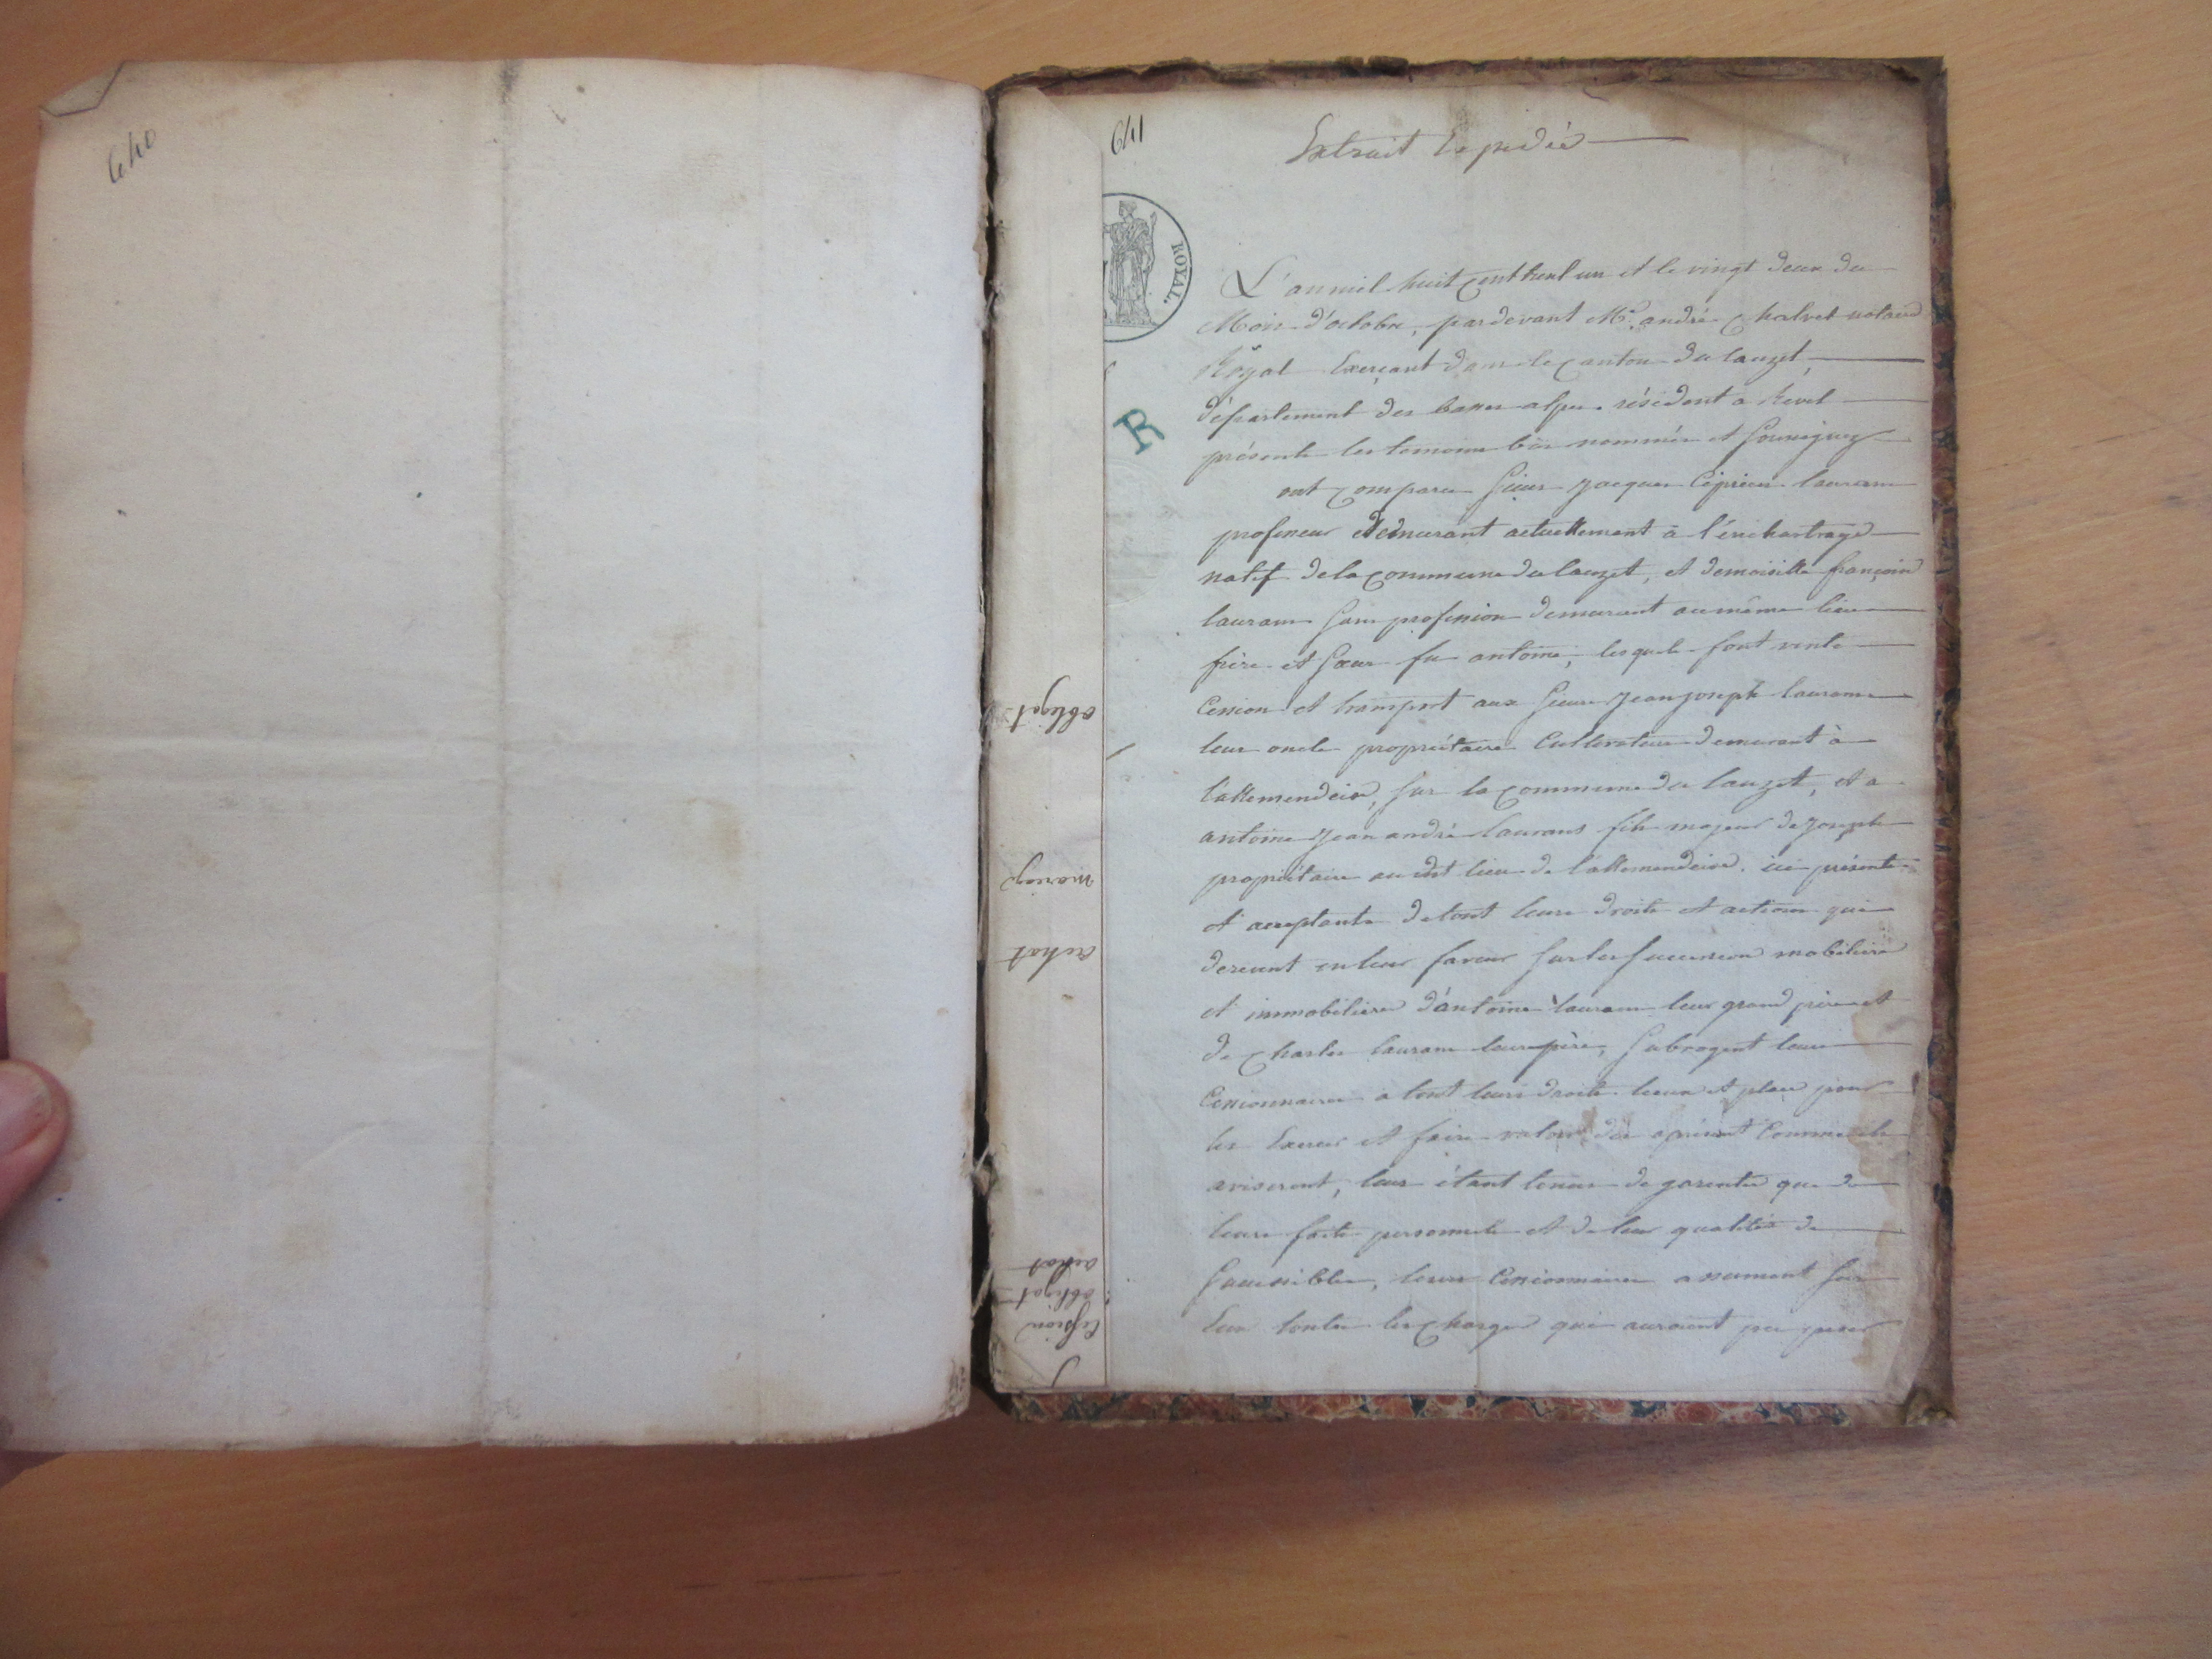 640
641
Extrait Expedié
ROYAL.
R
L'an mil huit cent trent un et le vingt deux du
Mois d'octobre, pardevant Me. andré Chalvet notaire
Royal Exerçant dans le canton du lauzet,
département des basses alpes. résident a Revel
présents les temoins bas nommés et Soussignés
ont comparu Sieur jacques Ciprien laurans
professeur demeurant actuellement à l'énchastraye
natif de la commune du lauzet, et demoiselle françoise
laurans Sans profession demeurant au même lieu
frère et Sœur fu antoine, lesquels font vente
Cession et transport aux Sieurs jean joseph laurans
leur oncle propriétaire Cultivateur demeurant à
l'allemendeire, sur la commune du lauzet, et a
antoine jean andré laurans fils majeur de joseph
propriétaire au dit lieu de l'allemendeire. ici présents
et acceptants de tout leurs droits et actions qui
derivent en leur faveur sur les successions mobiliere
et immobiliere d'antoine laurans leur grand père et
de Charles laurans leur père, Subrogent leurs
Cessionnaires a tout leurs droits lieux et place pour
les Exercer et faire valoir dès aprésent Comme ils
aviseront, leur étant tenus de garentie que de
leurs faits personnels et de leur qualités de
Successibles, leurs Cessionnaires assument sur
Eux toutes les charges qui auroient pu peser
obligat
mariage
achat
achat
obligat
Cession